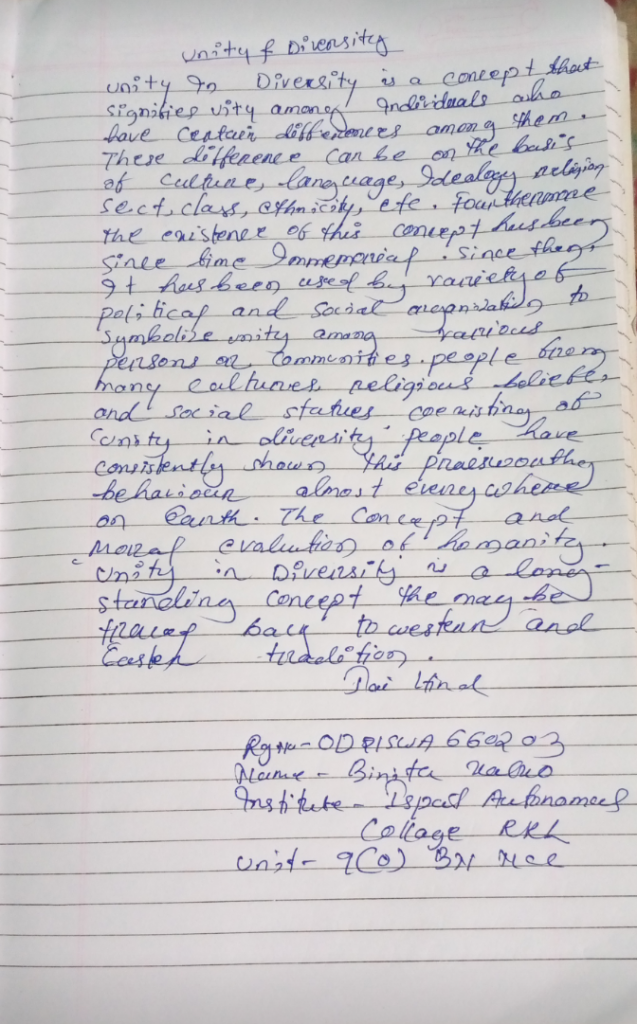 Unity & Diversity
Unity In Diversity is a concept that
signifies vity among Individuals who
have certain differences among them.
These difference can be on the basis
of culture, language, Idealogy religion
sect, class, ethnicity, etc. Fourthermore
the existence of this concept has been
since time Immemorial. Since then,
It has been used by variety of
political and social organization to
symbolize unity among various
persons or communities. people from
many cultures religious beliefs,
and social statues coexisting of
Unity in diversity people have
consistently shown this praisworthy
behaviour almost everywhere
on Earth. The concept and
moral evalution of homanity.
Unity in Diversity is a long-
standing concept the may be
traced back to western and
Easter tradition.
Jai Hind
ODR1SWA660203
Name - Binita
Institute - Ispat Autonomous
Collage RKL
Unit - 9(O) BN NCC